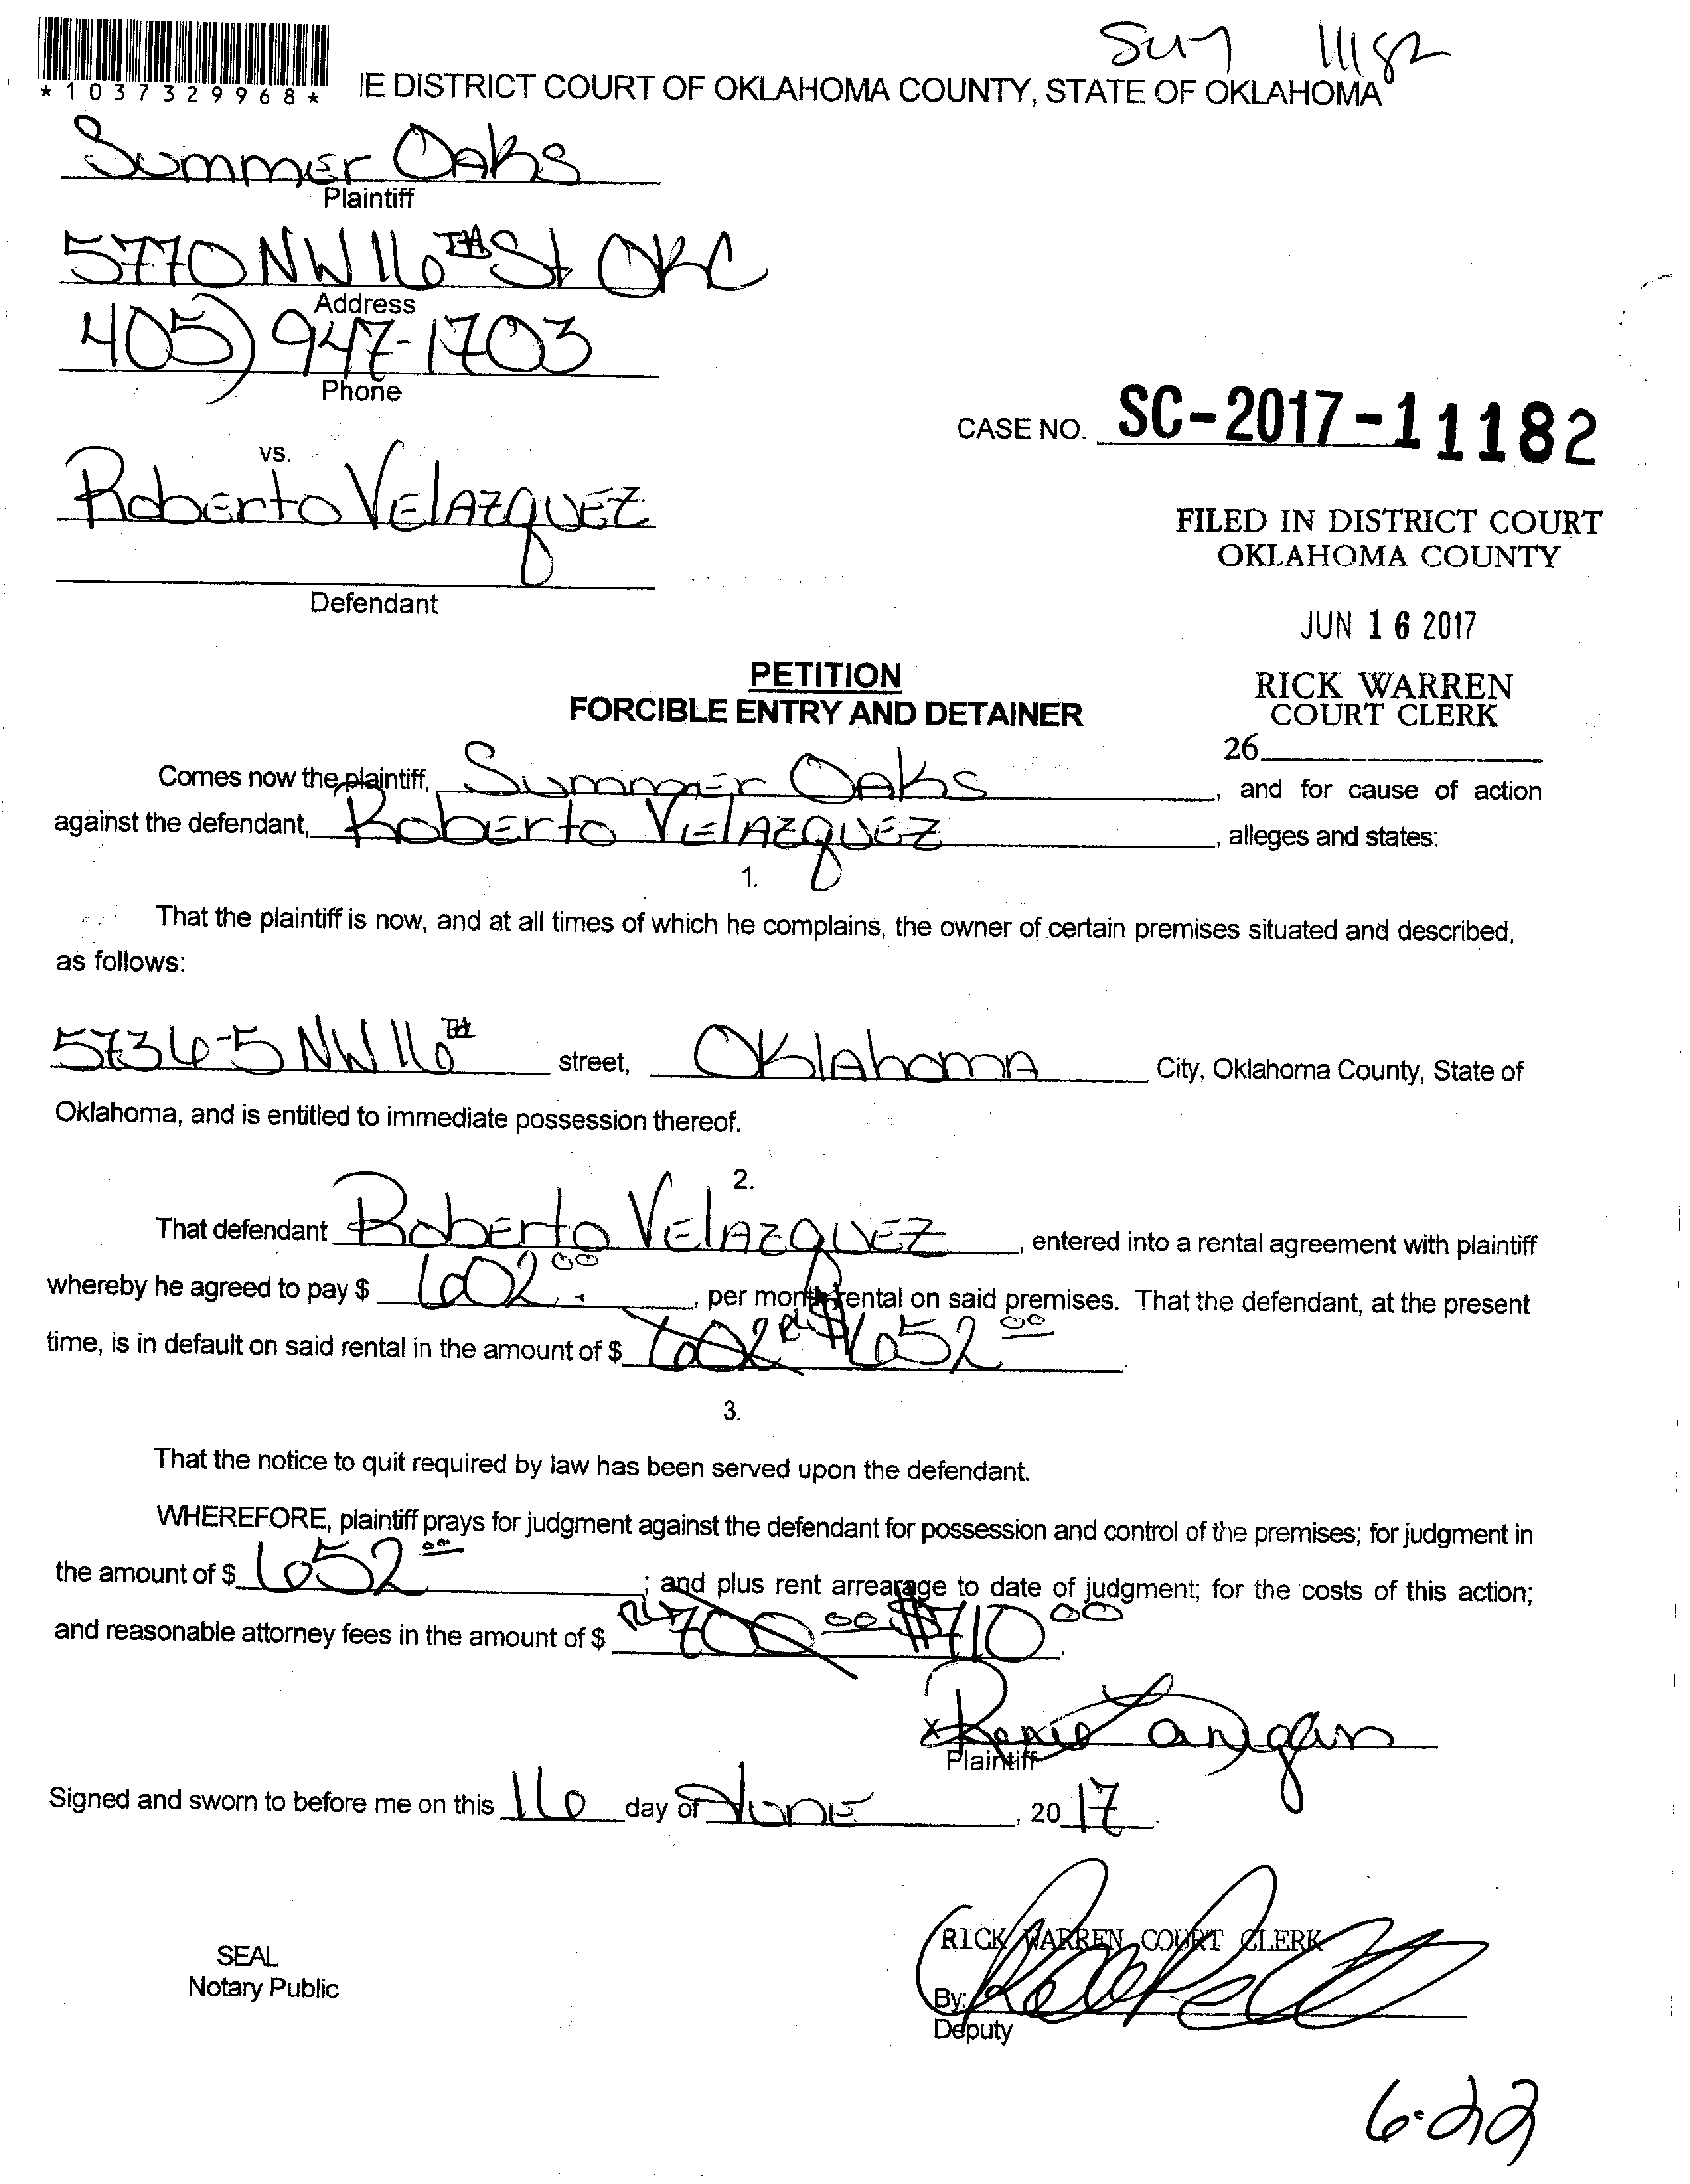 11182
*1037329968*
IE DISTRICT COURT OF OKLAHOMA COUNTY, STATE OF OKLAHOMA
Summer Oaks
Plaintiff
5770 NW 16TH St OKC
Address
405) 947-1703
Phone
CASE NO. SC-2017-11182
vs.
Roberto Velazquez
FILED IN DISTRICT COURT
OKLAHOMA COUNTY
Defendant
JUN 16 2017
PETITION
FORCIBLE ENTRY AND DETAINER
RICK WARREN
COURT CLERK
26
Comes now the plaintiff, Summer Oaks, and for cause of action
against the defendant, Roberto Velazquez, alleges and states:
1.
That the plaintiff is now, and at all times of which he complains, the owner of certain premises situated and described,
as follows:
5736-5 NW 16TH street, Oklahoma City, Oklahoma County, State of
Oklahoma, and is entitled to immediate possession thereof.
2.
That defendant Roberto Velazquez, entered into a rental agreement with plaintiff
whereby he agreed to pay $ 602.00, per month rental on said premises. That the defendant, at the present
time, is in default on said rental in the amount of $ 602 RL $652 00
3.
That the notice to quit required by law has been served upon the defendant.
WHEREFORE, plaintiff prays for judgment against the defendant for possession and control of the premises; for judgment in
the amount of $ 652 00; and plus rent arrearage to date of judgment; for the costs of this action;
and reasonable attorney fees in the amount of $ RL 700 00 $710 00
x
Plaintiff
Signed and sworn to before me on this 16 day of June, 2017
RICK WARREN COURT CLERK
SEAL
Notary Public
By:
Deputy
6-22